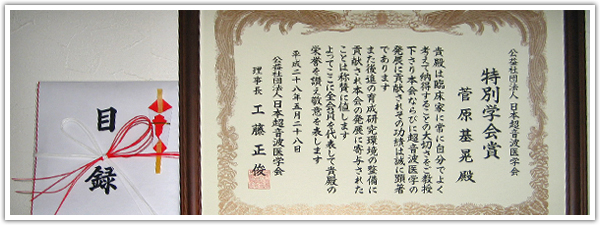 公益社団法人 日本超音波医学会
特別学会賞
菅原基晃 殿
貴殿は臨床家に常に自分でよく
考えて納得することの大切さをご教授
下さり本会ならびに超音波医学の
発展に貢献されその功績は誠に顕著
であります
また後進の育成研究環境の整備に
貢献され本会の発展に寄与された
ことは称賛に値します
よってここに全会員を代表して貴殿の
栄誉を讃え敬意を表します
平成二十八年五月二十八日
公益社団法人 日本超音波医学会
理事長 工藤正俊
目録